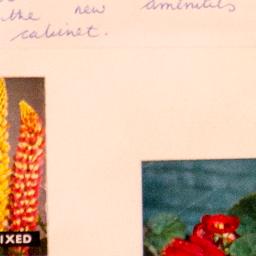 the new amenities
cabinet.
IXED